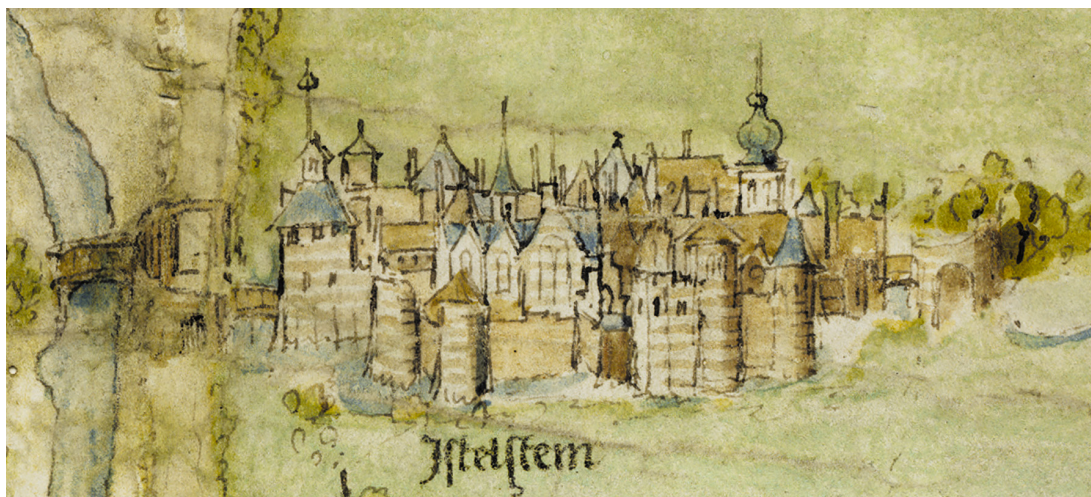 Jſtelſtein